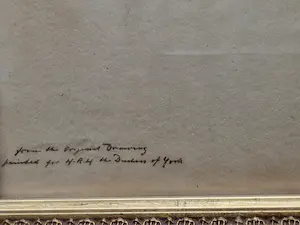 from the Original Drawing
painted for H.R.H the Duchess of York